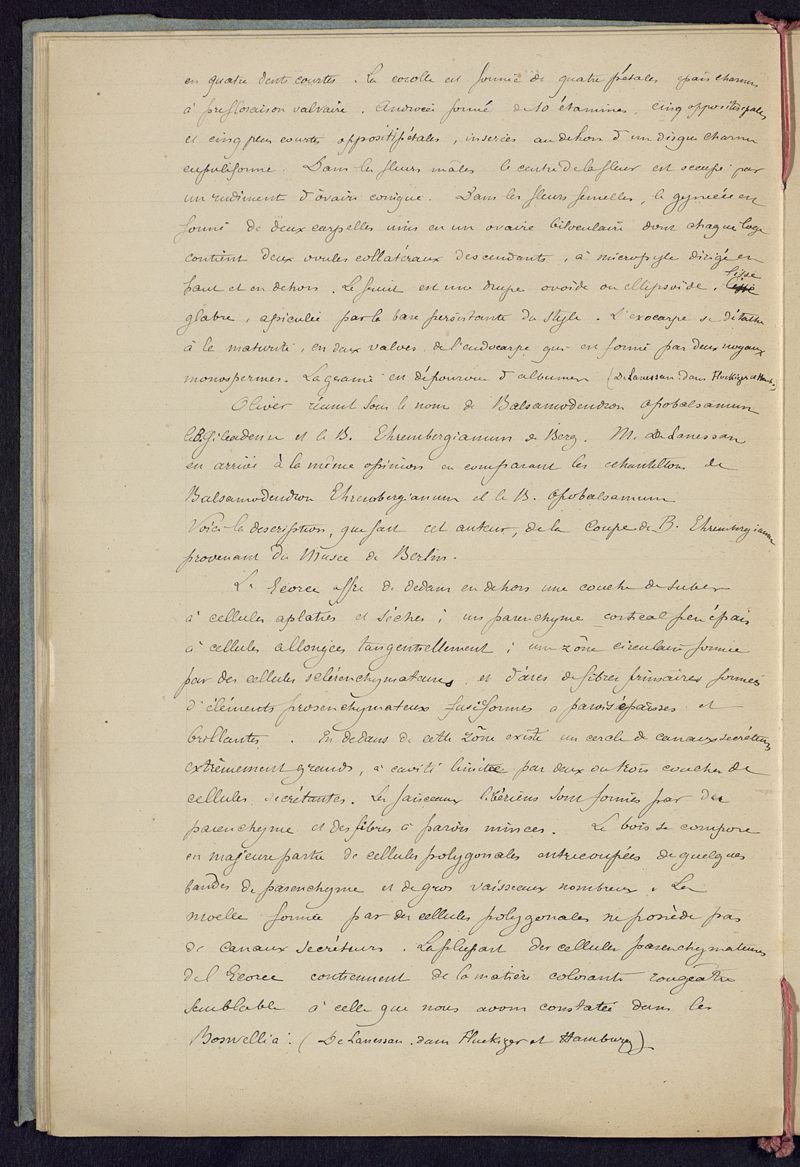 en quatre dents courtes. La corolle est formée de quatre pétales épais charnus
à préfloraison valvaire. Androcée formé de 10 étamines, cinq oppositisépales
et cinq plus courtes oppositipétales, insérées au dehors d'un disque charnu
cupuliforme. Dans les fleurs mâles le centre de la fleur est occupé par
un rudiment d'ovaire conique. Dans les fleurs femelles, le gynécée est
formé de deux carpelles unis en un ovaire biloculaire dont chaque loge
contient deux ovules collatéraux descendants, à micropyle dirigé en
haut et en dehors. Le fruit est une drupe ovoïde ou ellipsoïde, lisse
glabre, apiculée par la base persistante du style. L'exocarpe se détache
à la maturité, en deux valves, de l'endocarpe qui est formé par deux noyaux
monospermes. La graine est dépourvue d'albumen (De Lanessan dans Fluckiger et Hamb.)
Oliver réunit sous le nom de Balsamodendron opobalsamum
le B. gileadense et le B. Ehrembergianum de Berg. M. de Lanessan
est arrivé à la même opinion en comparant les échantillons de
Balsamodendron Ehrembergianum et le B. opobalsamum
Voici la description, que fait cet auteur, de la coupe de B. Ehrembergianum
provenant du Musée de Berlin.
L'Ecorce offre de dedans en dehors une couche de suber
à cellules aplaties et sèches ; un parenchyme cortical peu épais
à cellules allongées tangentiellement ; une zône circulaire formée
par des cellules sclérenchymateuses, et d'arcs de fibres primaires formés
d'éléments prosenchymateux fusiformes à parois épaisses et
brillantes. En dedans de cette zône existe un cercle de canaux sécréteurs
extrêmement grands, à cavité limitée par deux ou trois couches de
cellules sécrétantes. Les faisceaux libériens sont formés par du
parenchyme et des fibres à parois minces. Le bois se compose
en majeure partie de cellules polygonales entrecoupées de quelques
bandes de parenchyme et de gros vaisseaux nombreux. La
moelle formée par des cellules polygonales ne possède pas
de canaux sécréteurs. La plupart des cellules parenchymateuses
de l'Ecorce contiennent de la matière colorante rougeâtre
semblable à celle que nous avons constatée dans les
Boswellia. (De Lanessan. dans Fluckiger et Hamburg)